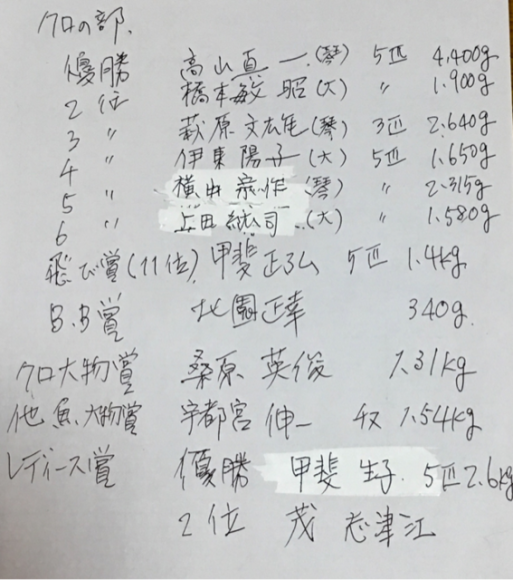 クロの部.
優勝 高山直一.(琴) 5匹 4.400g
2位 橋本敏昭(大) 〃 1.900g
3〃 萩原文雄(琴) 3匹 2.640g
4〃 伊東陽子(大) 5匹 1.650g
5〃 横田 作(琴) 〃 2.315g
6〃 上田 司.(大) 〃 1.580g
飛び賞(11位) 甲斐正弘 5匹 1.4kg
B.B賞 北園正幸 340g.
クロ大物賞 桑原英俊 1.31kg
他魚大物賞 宇都宮伸一 チヌ 1.54kg
レディース賞 優勝 甲斐生子. 5匹2.6kg
2位 茂 志津江